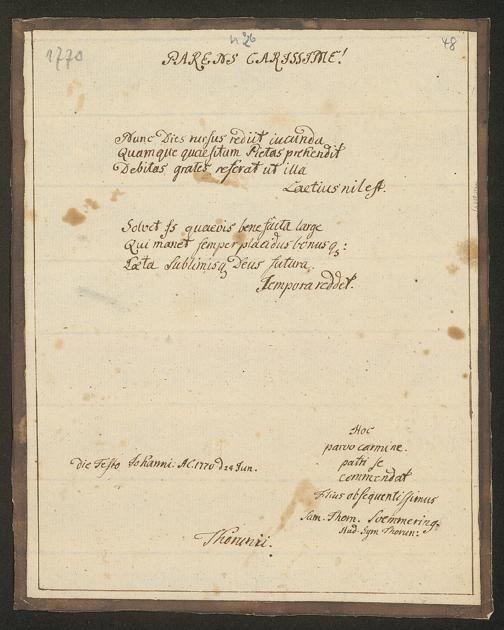 1770
N 26
48
PARENS CARISSIME!
Nunc Dies rursus rediit iucunda
Quamque quaesitam Pietas prehendit
Debitas grates referat ut illa
Laetius nil est.
Solvet is quaevis benefacta large
Qui manet semper placidus bonusq;:
Læta sublimisq; Deus futura
Tempora reddet.
Hoc
parvo carmine.
patri se
commendat
Filius obsequentissimus
Sam. Thom. Soemmering.
Stud. Gym. Thorun:
die Festo Johanni. AC. 1770 d 24 Jun.
Thorunii.